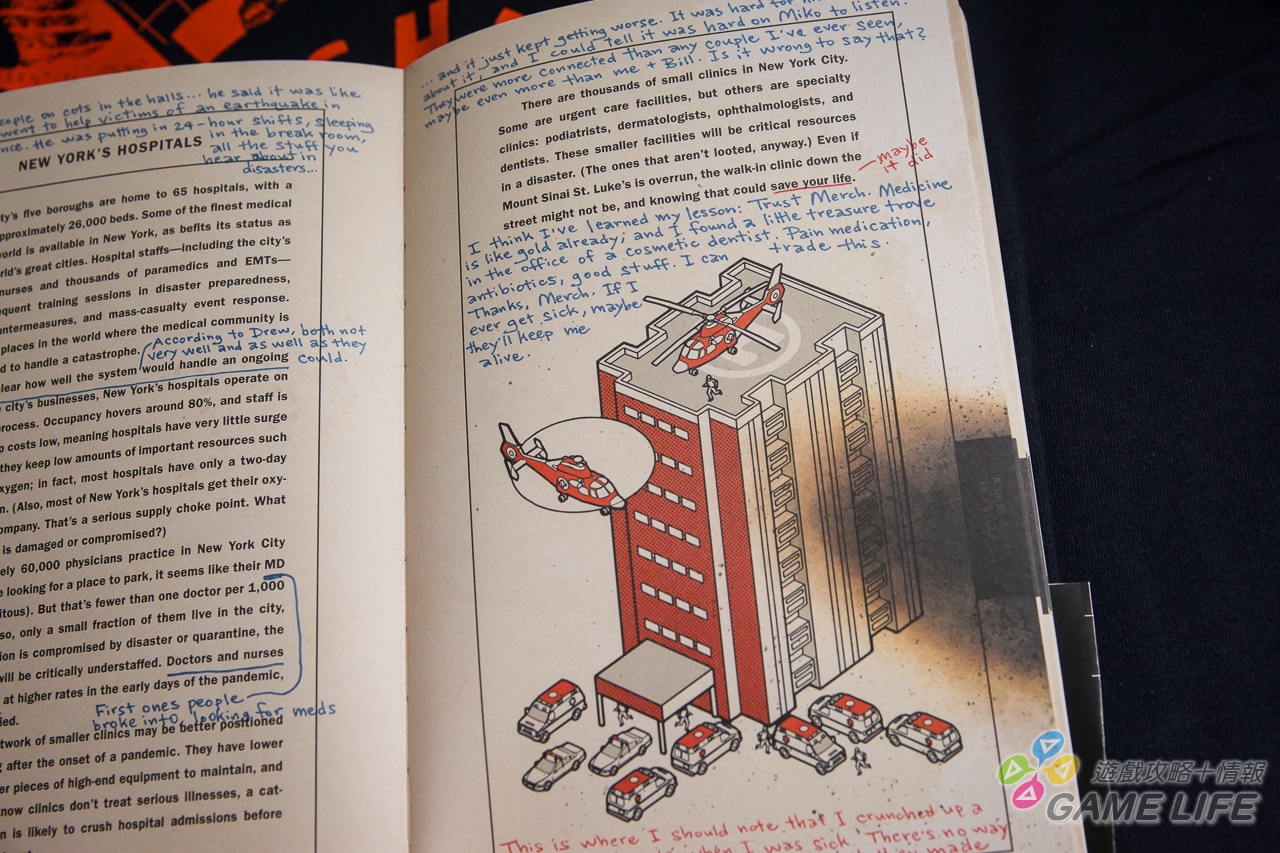 SH
eople on cots in the halls... he said it was like
went to help victims of an earthquake in
nce. He was putting in 24-hour shifts, sleeping
in the break room,
all the stuff you
hear about in
disasters...
NEW YORK'S HOSPITALS
ty's five boroughs are home to 65 hospitals, with a
pproximately 26,000 beds. Some of the finest medical
world is available in New York, as befits its status as
rld's great cities. Hospital staffs—including the city's
nurses and thousands of paramedics and EMTs—
quent training sessions in disaster preparedness,
ntermeasures, and mass-casualty event response.
places in the world where the medical community is
d to handle a catastrophe.
According to Drew, both not
very well and as well as they
could.
lear how well the system would handle an ongoing
city's businesses, New York's hospitals operate on
process. Occupancy hovers around 80%, and staff is
p costs low, meaning hospitals have very little surge
they keep low amounts of important resources such
xygen; in fact, most hospitals have only a two-day
n. (Also, most of New York's hospitals get their oxy-
ompany. That's a serious supply choke point. What
is damaged or compromised?)
ely 60,000 physicians practice in New York City
e looking for a place to park, it seems like their MD
itous). But that's fewer than one doctor per 1,000
so, only a small fraction of them live in the city,
ion is compromised by disaster or quarantine, the
will be critically understaffed. Doctors and nurses
at higher rates in the early days of the pandemic,
ied.
First ones people
broke into, looking for meds
twork of smaller clinics may be better positioned
g after the onset of a pandemic. They have lower
er pieces of high-end equipment to maintain, and
now clinics don't treat serious illnesses, a cat-
n is likely to crush hospital admissions before
...and it just kept getting worse. It was hard for
about it, and I could tell it was hard on Miko to listen.
They were more connected than any couple I've ever seen,
maybe even more than me + Bill. Is it wrong to say that?
There are thousands of small clinics in New York City.
Some are urgent care facilities, but others are specialty
clinics: podiatrists, dermatologists, ophthalmologists, and
dentists. These smaller facilities will be critical resources
in a disaster. (The ones that aren't looted, anyway.) Even if
Mount Sinai St. Luke's is overrun, the walk-in clinic down the
street might not be, and knowing that could save your life.
maybe
it did
I think I've learned my lesson: Trust Merch. Medicine
is like gold already; and I found a little treasure trove
in the office of a cosmetic dentist. Pain medication,
antibiotics, good stuff. I can trade this.
Thanks, Merch. If I
ever get sick, maybe
they'll keep me
alive.
This is where I should note that I crunched up a
when I was sick. There's no way
they made
遊戲攻略+情報
GAME LIFE